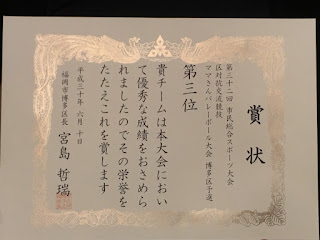 賞状
第三十二回 市民総合スポーツ大会
区対抗交流競技
ママさんバレーボール大会 博多区予選
第三位
貴チームは本大会におい
て優秀な成績をおさめら
れましたのでその栄誉を
たたえこれを賞します
平成三十年 六月 十日
福岡市博多区長 宮島 哲瑞